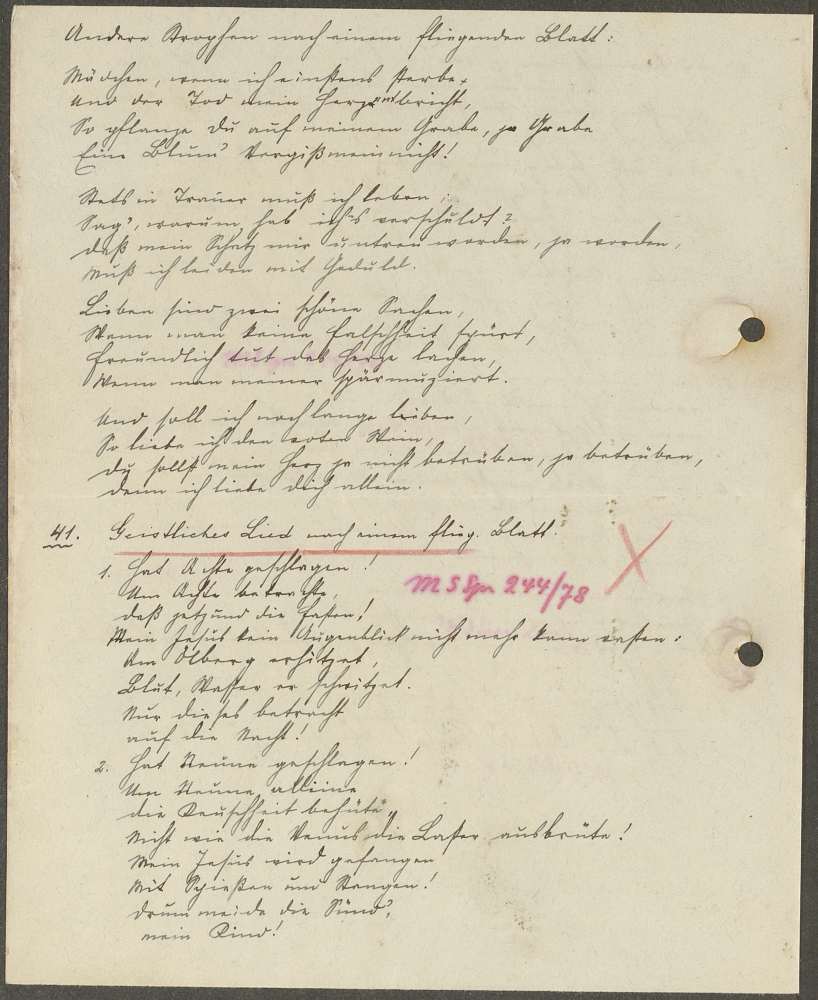 Andere Strophen nach einem fliegenden Blatt:
Mädchen, wenn ich einstens sterbe,
und der Tod mein Herze bricht,
So pflanze du auf meinem Grabe, ja Grabe
Eine Blum' Vergißmeinnicht!
Stets in Trauer muß ich leben;
Sag', warum hab ich's verschuld't?
daß mein Schatz mir untreu worden, ja worden,
muß ich leiden mit Geduld.
Lieben sind zwei schöne Sachen,
Wenn man keine Falschheit spürt,
Freundlich tut das Herze lachen,
Wenn man meiner
Und soll ich noch lange lieben,
So liebe ich den roten Wein,
Du sollst mein Herz ja nicht betrüben, ja betrüben,
denn ich liebe dich allein.
41. Geistliches Lied nach einem flieg. Blatt.
1. Hat Achte geschlagen!
Um Achte betrachte,
daß jetzund die Fasten!
Mein Jesus kein Augenblick nicht mehr kann rasten:
Am Ölberg erhitzet,
Blut, Wasser er schwitzet.
Nur dieses betracht
auf die Nacht!
M S Spr 244/78
2. Hat Neune geschlagen!
Um Neune alleine
die Keuschheit behüte,
Nicht wie die Venus die Laster ausbrüte!
Mein Jesus wird gefangen
Mit Spießen und Stangen!
drum meide die Sünd',
mein Kind!